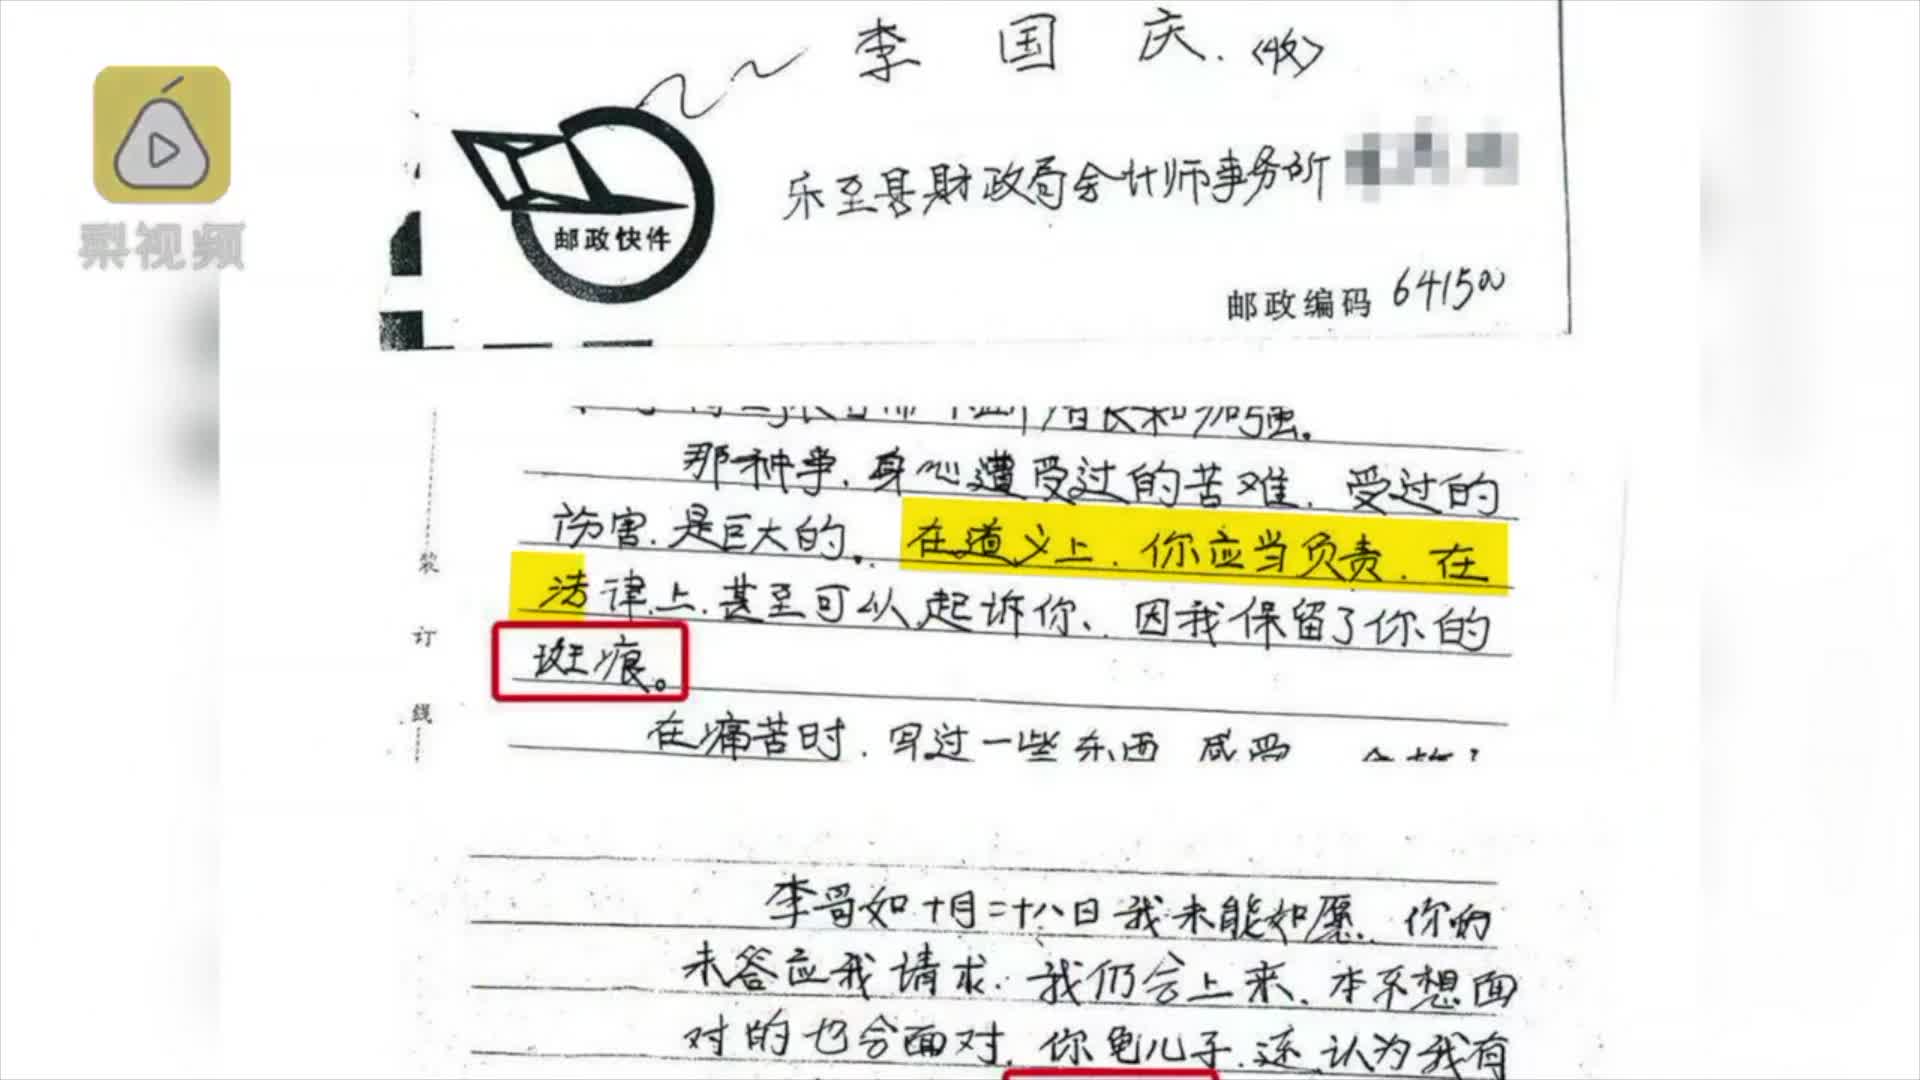 梨视频
李国庆.<收>
乐至县财政局会计师事务所
邮政快件
邮政编码 641500
长和加强。
那种学,身心遭受过的苦难,受过的
伤害,是巨大的。在道义上,你应当负责,在
法律上,甚至可以起诉你、因我保留了你的
斑痕。
在痛苦时,写过一些东西
装
订
线
李哥如十月二十八日我未能如愿,你的
未答应我请求.我们会上来,本不想面
对的也会面对,你龟儿子,还认为我有